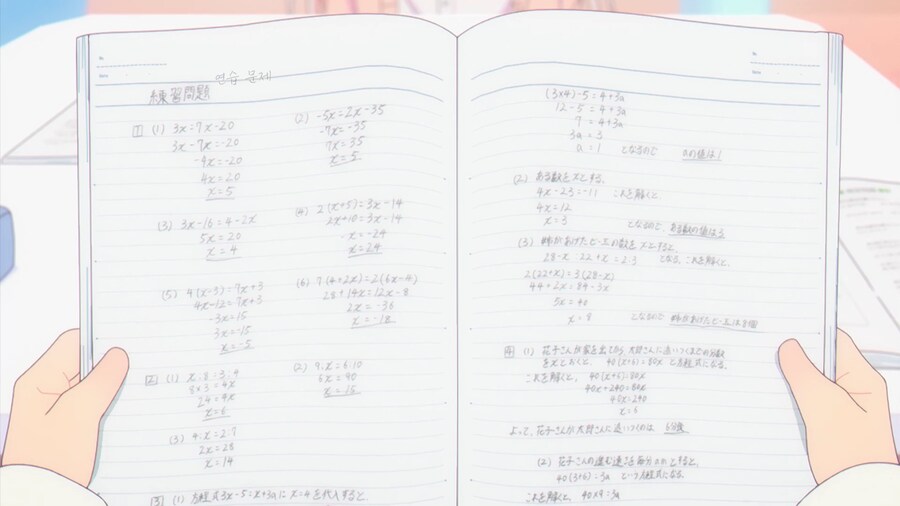 연습 문제
練習問題
1 (1) 3x=7x-20
3x-7x=-20
-4x=-20
4x=20
x=5
(2) -5x=2x-35
-7x=-35
7x=35
x=5
(3) 3x-16=4-2x
5x=20
x=4
(4) 2(x+5)=3x-14
2x+10=3x-14
-x=-24
x=24
(5) 4(x-3)=7x+3
4x-12=7x+3
-3x=15
3x=-15
x=-5
(6) 7(4+2x)=2(6x-4)
28+14x=12x-8
2x=-36
x=-18
2 (1) x:8=3:4
8×3=4x
24=4x
x=6
(2) 9:x=6:10
6x=90
x=15
(3) 4:x=2:7
2x=28
x=14
3 (1) 方程式3x-5=x+3aに x=4を代入すると、
(3×4)-5=4+3a
12-5=4+3a
7=4+3a
3a=3
a=1 となるので aの値は1
(2) ある数をxとする。
4x-23=-11 これを解くと
4x=12
x=3 となるので ある数の値は3
(3) 姉があげたビー玉の数をxとすると、
28-x:22+x=2:3 となる。これを解くと、
2(22+x)=3(28-x)
44+2x=84-3x
5x=40
x=8 となるので 姉があげたビー玉は8個
4 (1) 花子さんが家を出てから、太郎さんに追いつくまでの分数
をxとおくと、 40(x+6)=80x と方程式になる。
これを解くと、 40(x+6)=80x
40x+240=80x
40x=240
x=6
よって、花子さんが太郎さんに追いつくのは 6分後
(2) 花子さんの進む速さを毎分amとすると、
40(3+6)=3a という方程式になる。
これを解くと、 40×9=3a